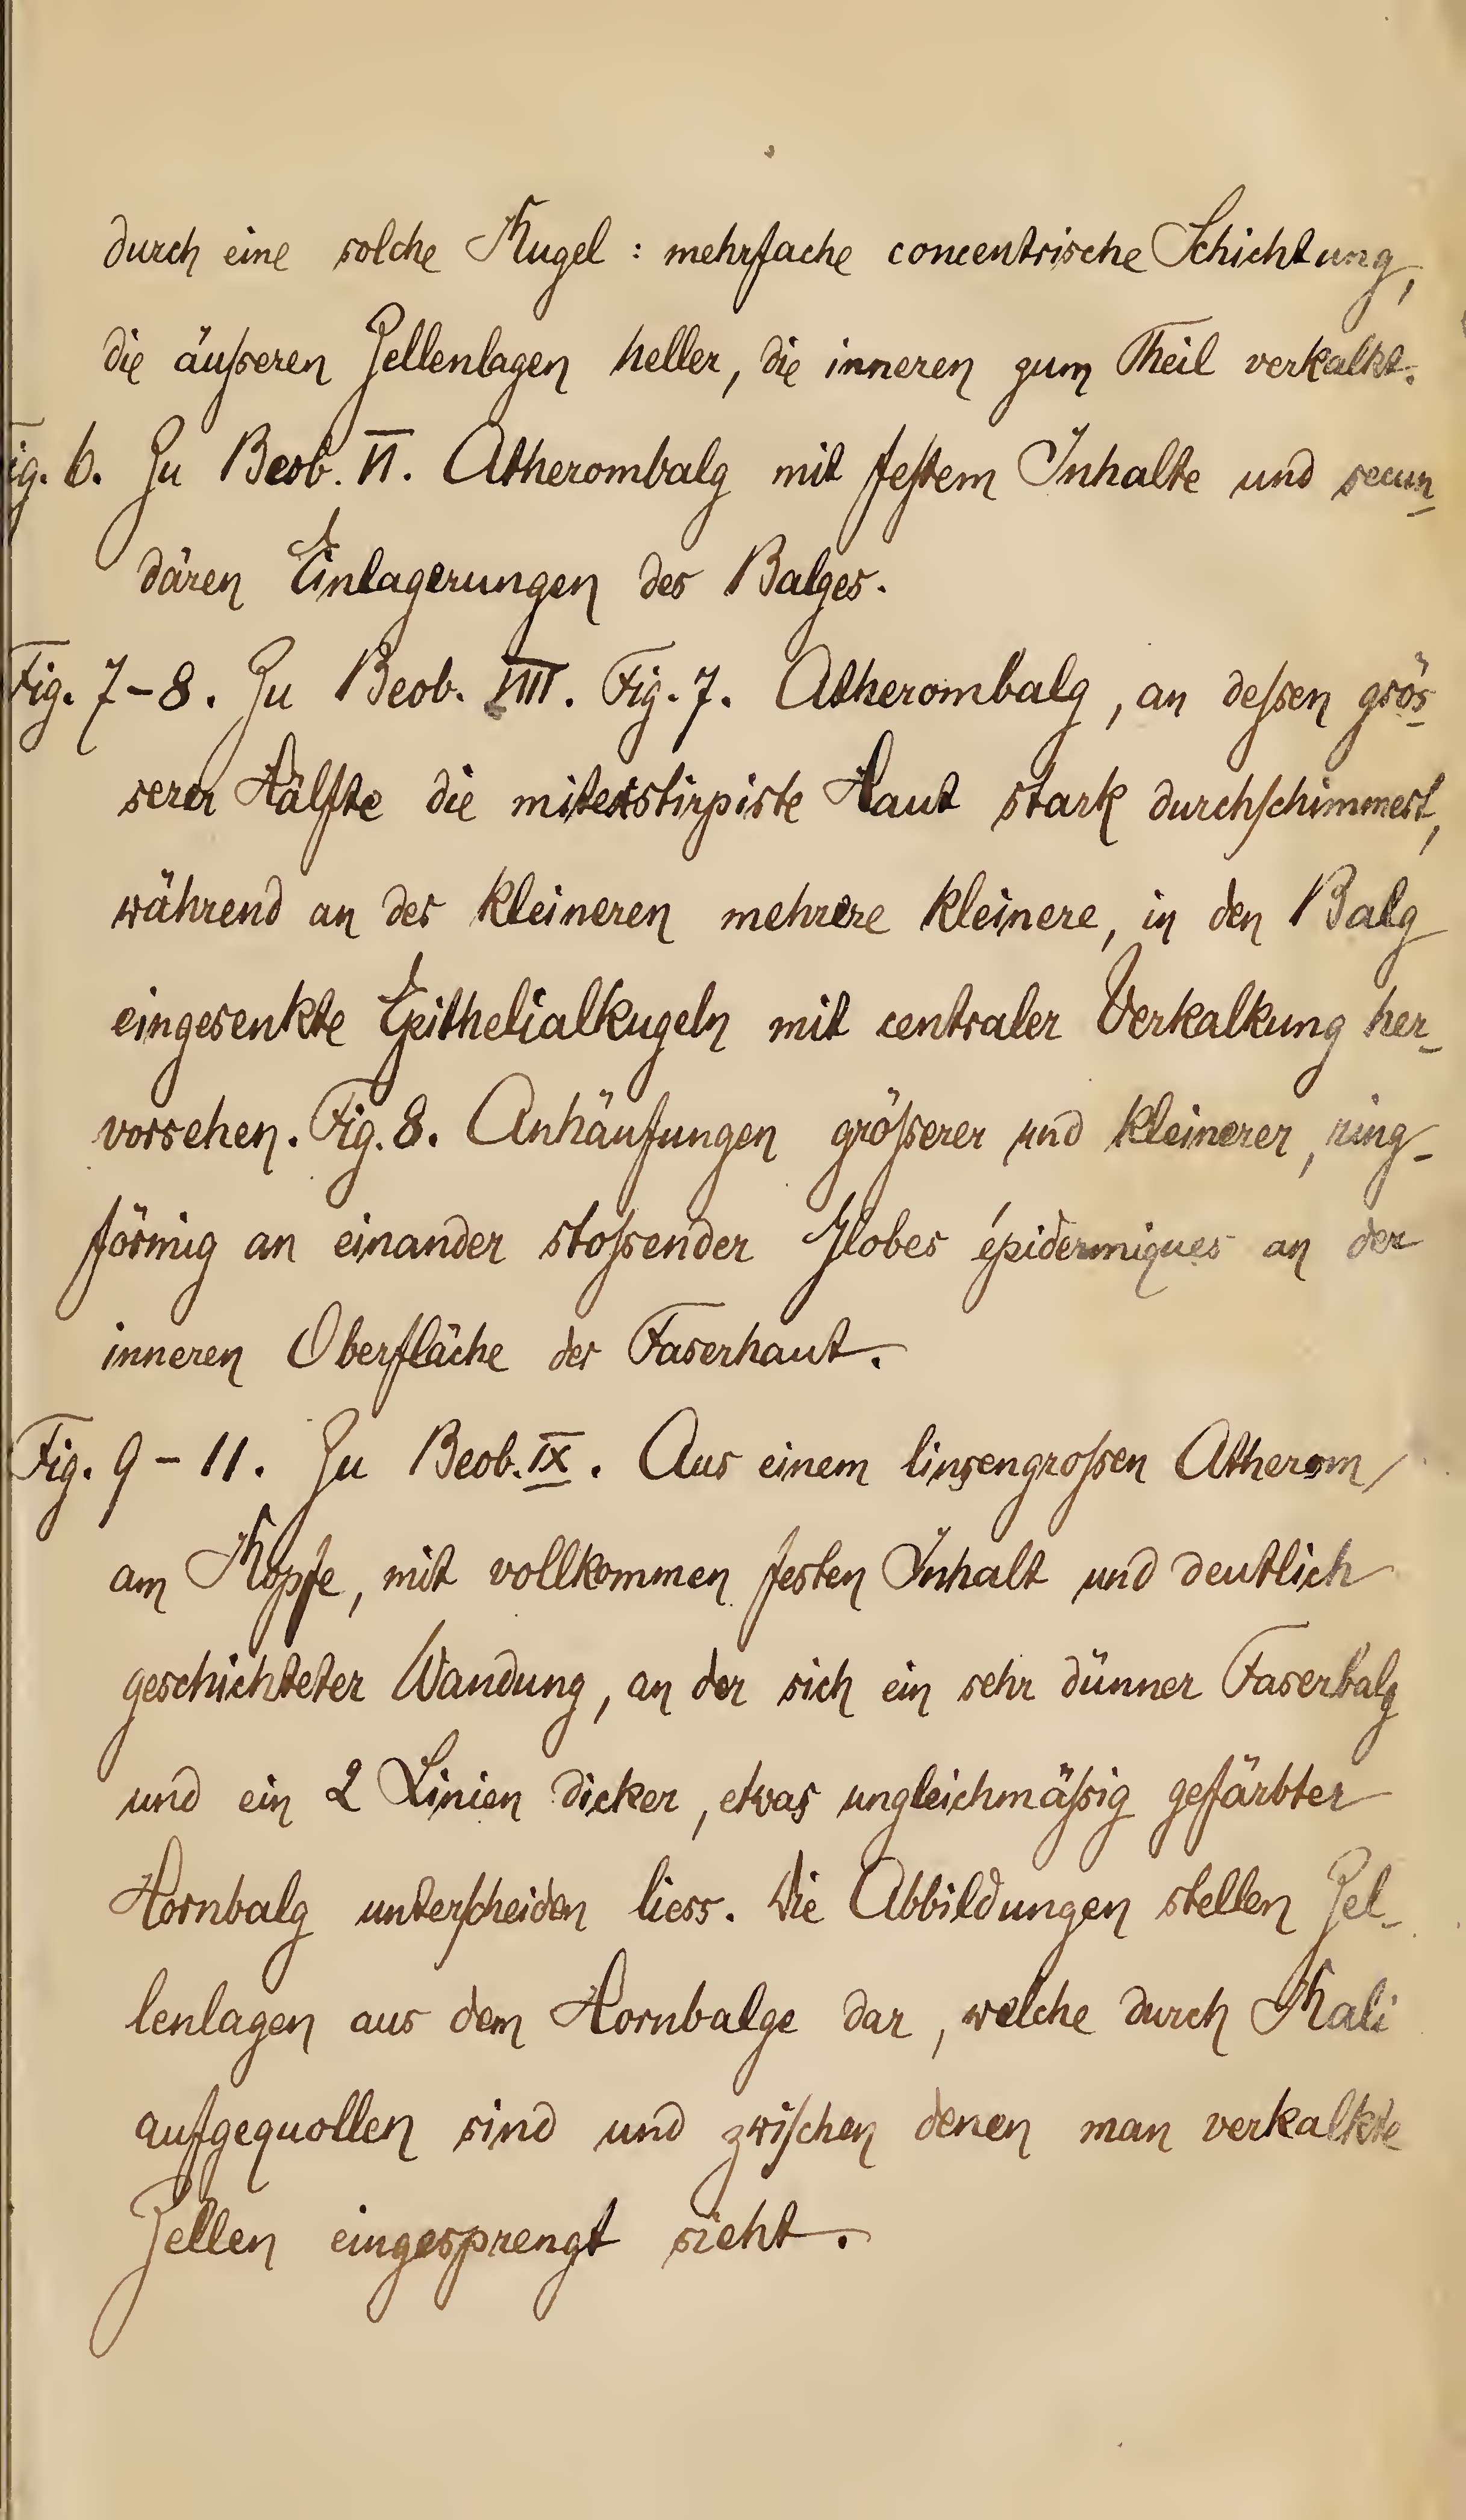 durch eine solche Kugel: mehrfache concentrische Schichtung,
die äußeren Zellenlagen heller, die inneren zum Theil verkalkt.
Fig. 6. Zu Beob. VI. Atherombalg mit festem Inhalte und secun-
dären Einlagerungen des Balges.
Fig. 7-8. Zu Beob. VIII. Fig. 7. Atherombalg, an dessen grös-
serer Hälfte die Haut stark durchschimmert,
während an der kleineren mehrere kleinere, in den Balg
eingesenkte Epithelialkugeln mit centraler Verkalkung her-
vorsehen. Fig. 8. Anhäufungen größerer und kleinerer, ring-
förmig an einander stoßender Globes épidermiques an der
inneren Oberfläche der Faserhaut.
Fig. 9-11. Zu Beob. IX. Aus einem linsengroßen Atherom
am Kopfe, mit vollkommen festen Inhalt und deutlich
geschichteter Wandung, an der sich ein sehr dünner Faserbalg
und ein 2 Linien dicker, etwas ungleichmäßig gefärbter
Hornbalg unterscheiden liess. Die Abbildungen stellen Zel-
lenlagen aus dem Hornbalge dar, welche durch Kali
aufgequollen sind und zwischen denen man verkalkte
Zellen eingesprengt sieht.